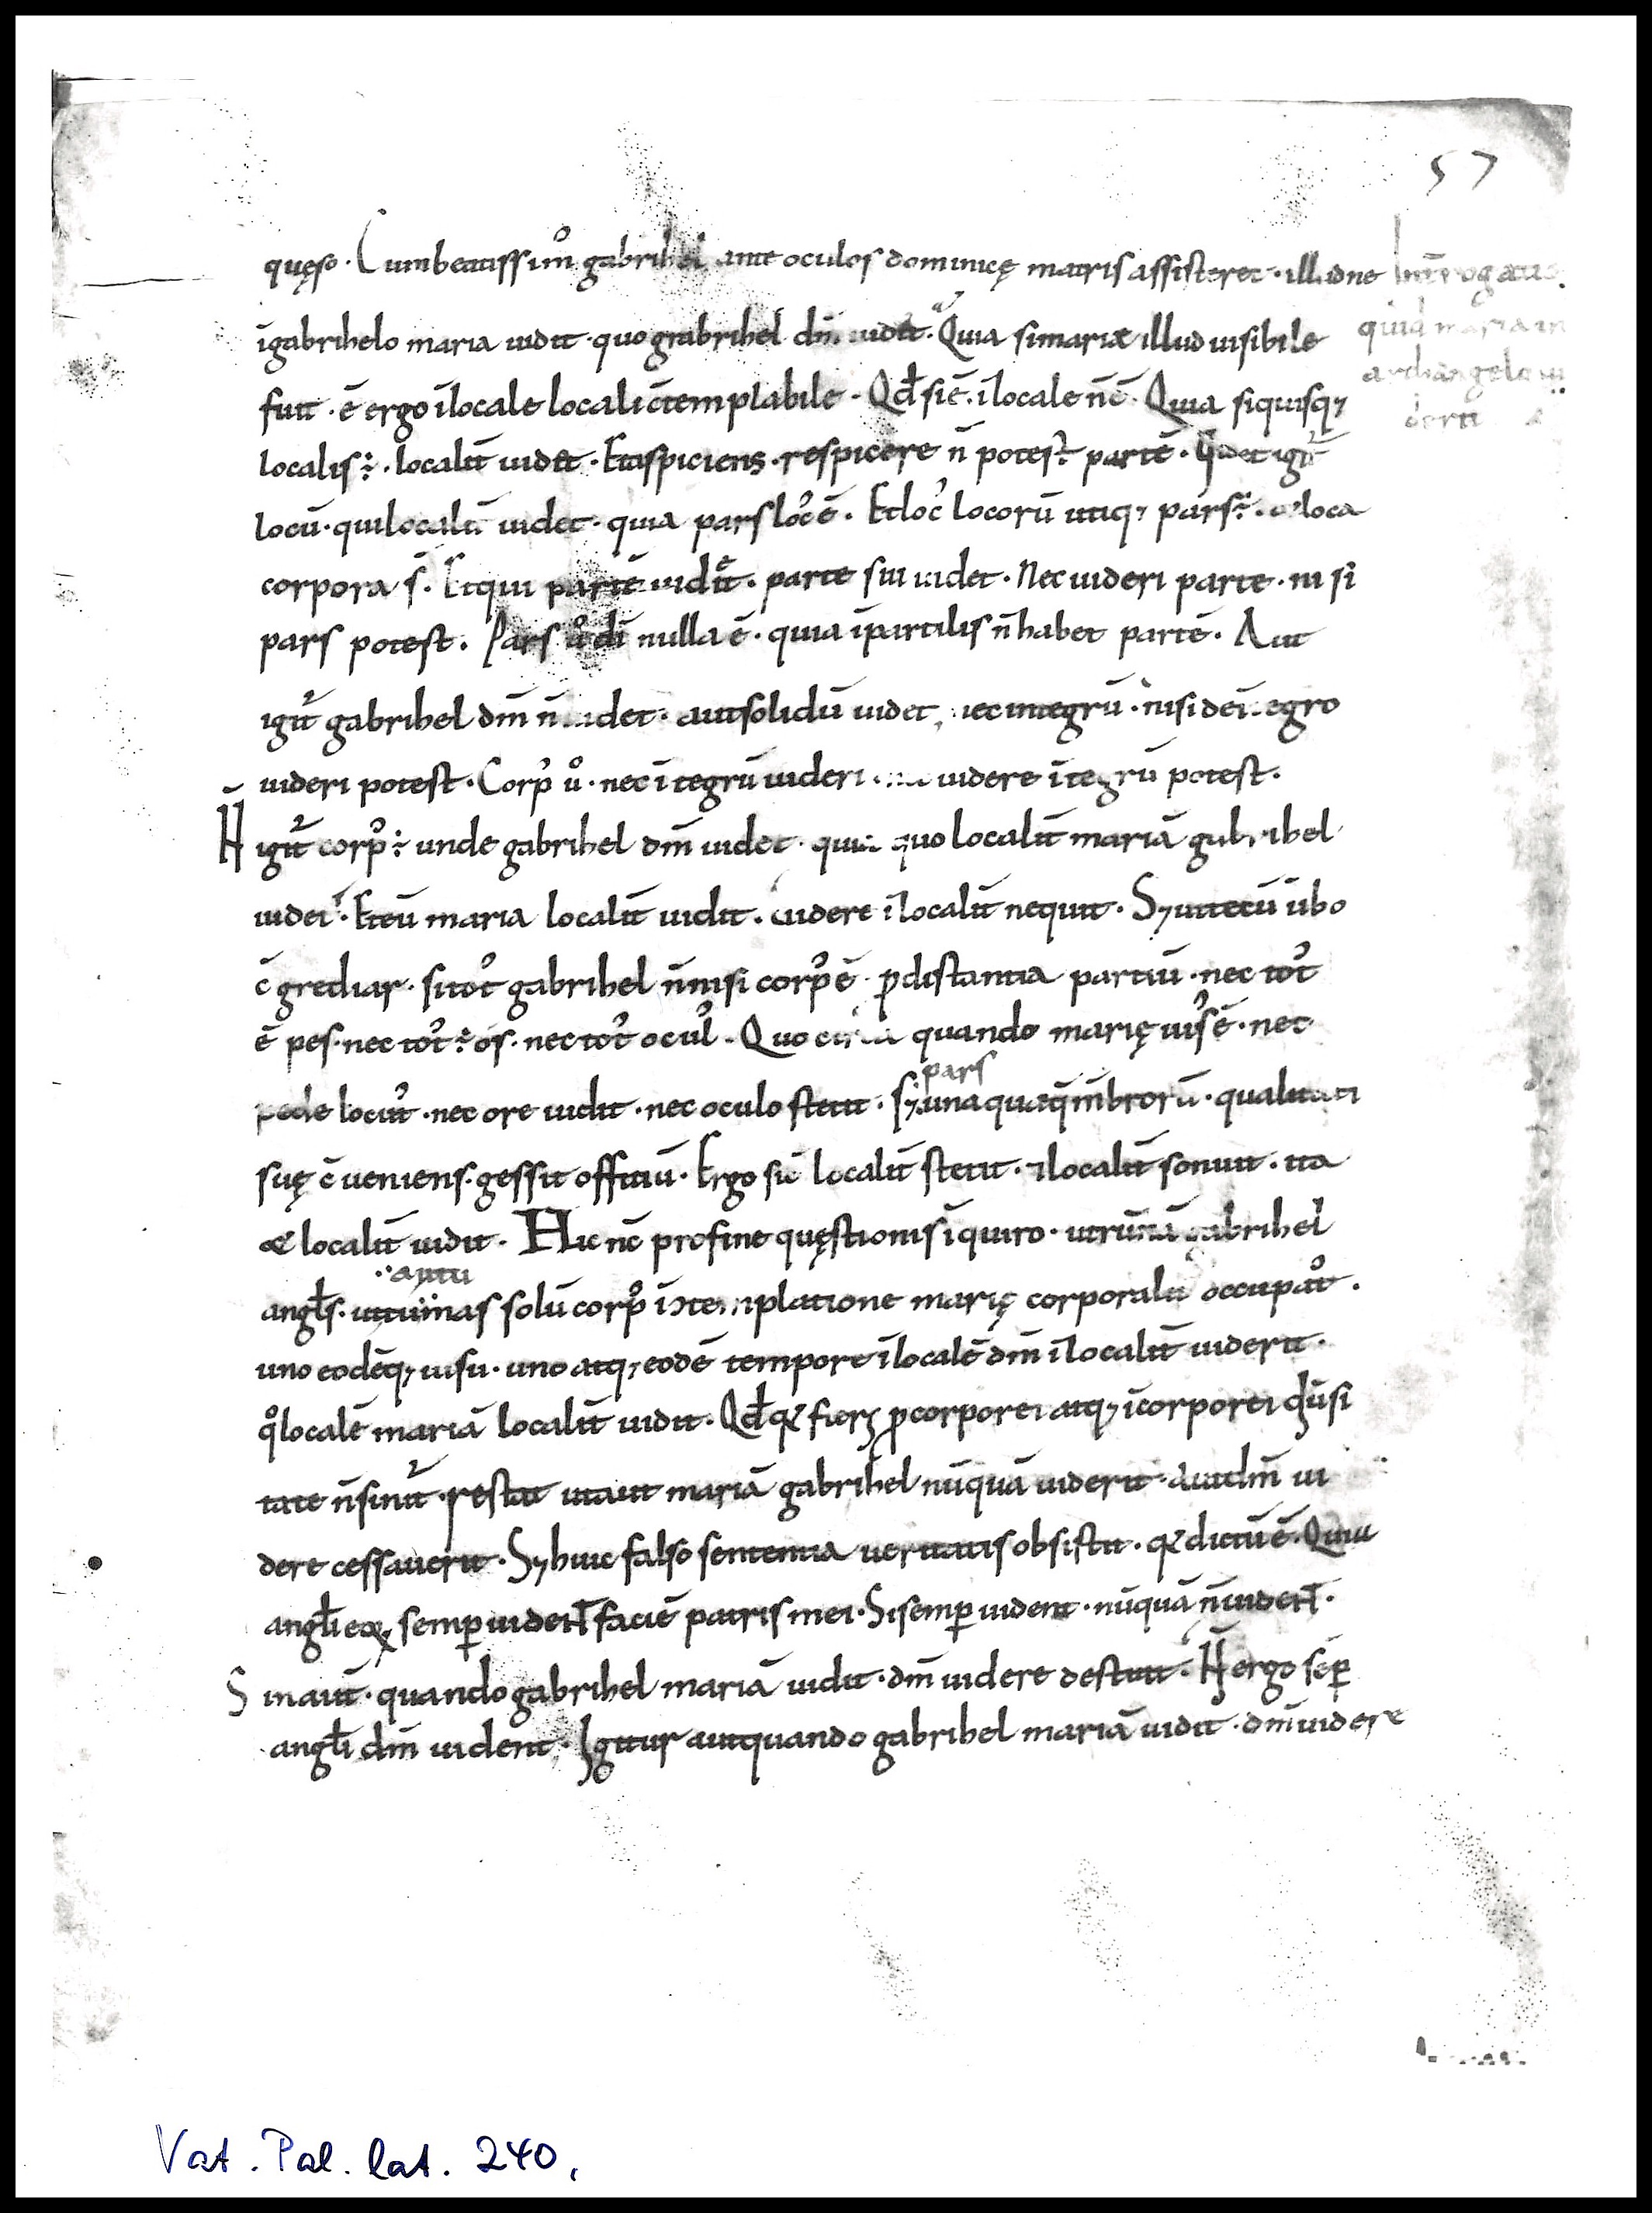 57
quęso · Cum beatissim̊ gabrihel ante oculos dominicę matris assisteret · illudne
īgabrihelo maria uidit · quo gabrihel dm̄ uidet · Quia si mariæ illud uisibile
fuit · ē ergo īlocale locali c̄templabile · Qd̄ si ē · īlocale n̄ ē · Quia siquisq;
localis ÷ · localit̄ uidet · Et aspiciens · respicere n̄ potest ÷ partē · Videt igit̄
locū · qui localit̄ uidet · quia pars loc᾽ ē · Et loc᾽ locorū utiq; pars ÷ · loca
corpora s̄ · Et qui partē uidet · parte sui uidet · Nec uideri parte · nisi
pars potest · Pars ů di nulla ē · quia īpartilis n̄ habet partē · Aut
igit̄ gabrihel dm̄ n̄ uidet · aut solidū uidet nec integrū · nisi de īegro
uideri potest · Corp᾽ ů · nec ītegrū uideri · videre ītegrū potest ·
H̄ igit̄ corp᾽ ÷ unde gabrihel dm̄ uidet · quia quo localit̄ mariā gabrihel
uidet · Et eū maria localit̄ uidit · uidere īlocalit̄ nequit · S; ut tecū ūbo
c̄grediar · si tot᾽ gabrihel n̄ nisi corp᾽ ē · p distantia partiū · nec tot᾽
ē pes · nec tot᾽ ÷ os · nec tot᾽ ocul᾽ · Quo circa quando marię uis᾽ ē · nec
pars
pede locut᾽ · nec ore uidit · nec oculo stetit · s; una quæq; m̄brorū · qualitati
suę c̄ueniens · gessit offitiū · Ergo sic̄ localit̄ stetit · īlocalit̄ sonuit · ita
& localit̄ uidit · Hic nc̄ pro fine quęstionis īquiro · utrūnā gabrihel
angl̄s · solū corp᾽ templatione marię corporalit̄ occupat᾽ ·
uno eodēq; uisu · uno atq; eodē tempore īlocalē dm̄ īlocalit̄ uiderit ·
q̊ localē mariā localit̄ uidit · Qd̄ fieri p corporei atq; īcorporei diūsi
tate n̄ sinit̄ · restat ut aut mariā gabrihel nūquā uiderit · aut dm̄ ui
dere cessauerit · S; huic falso sententia ueritatis obsistit · dictū ē · Quia
angl̄i eoꝝ semp uident faciē patris mei · Si semp uident · nūquā n̄ uident ·
Sin aut̄ · quando gabrihel mariā uidit · dm̄ uidere destitit · H̄ ergo sēp
angl̄i dm̄ uident · Igitur aut quando gabrihel mariā uidit · dm̄ uidere
Int̄rogatio
quid maria in
archangelo ui
derit
Vat. Pal. lat. 240,